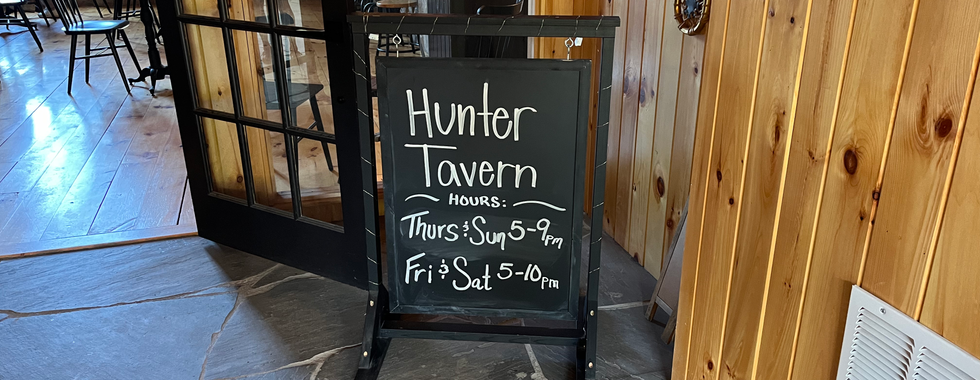 Hunter
Tavern
HOURS:
Thurs & Sun 5-9pm
Fri & Sat 5-10pm